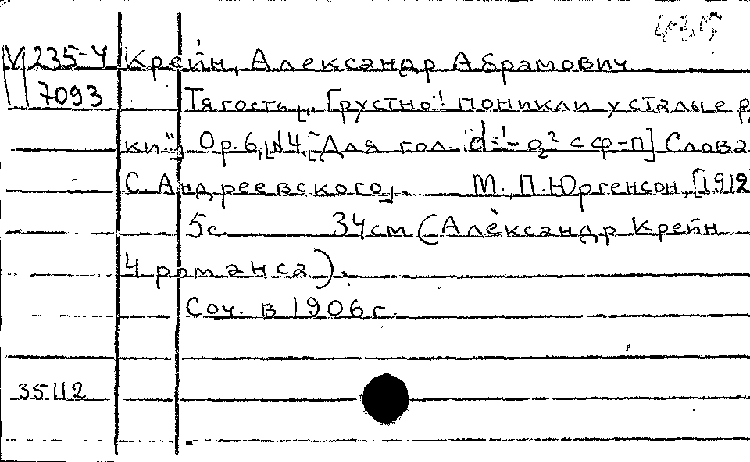 М 235-4 Крейн, Александр Абрамович
7093 Тягость „Грустно! поникли усталые ру
ки"] Op. 6, №4. [Для гол. d¹-g² с ф-п] Слова
С. Андреевского. М. П. Юргенсон, [1912
5с. 34см (Александр Крейн
4 романса).
Соч. в 1906 г.
35112